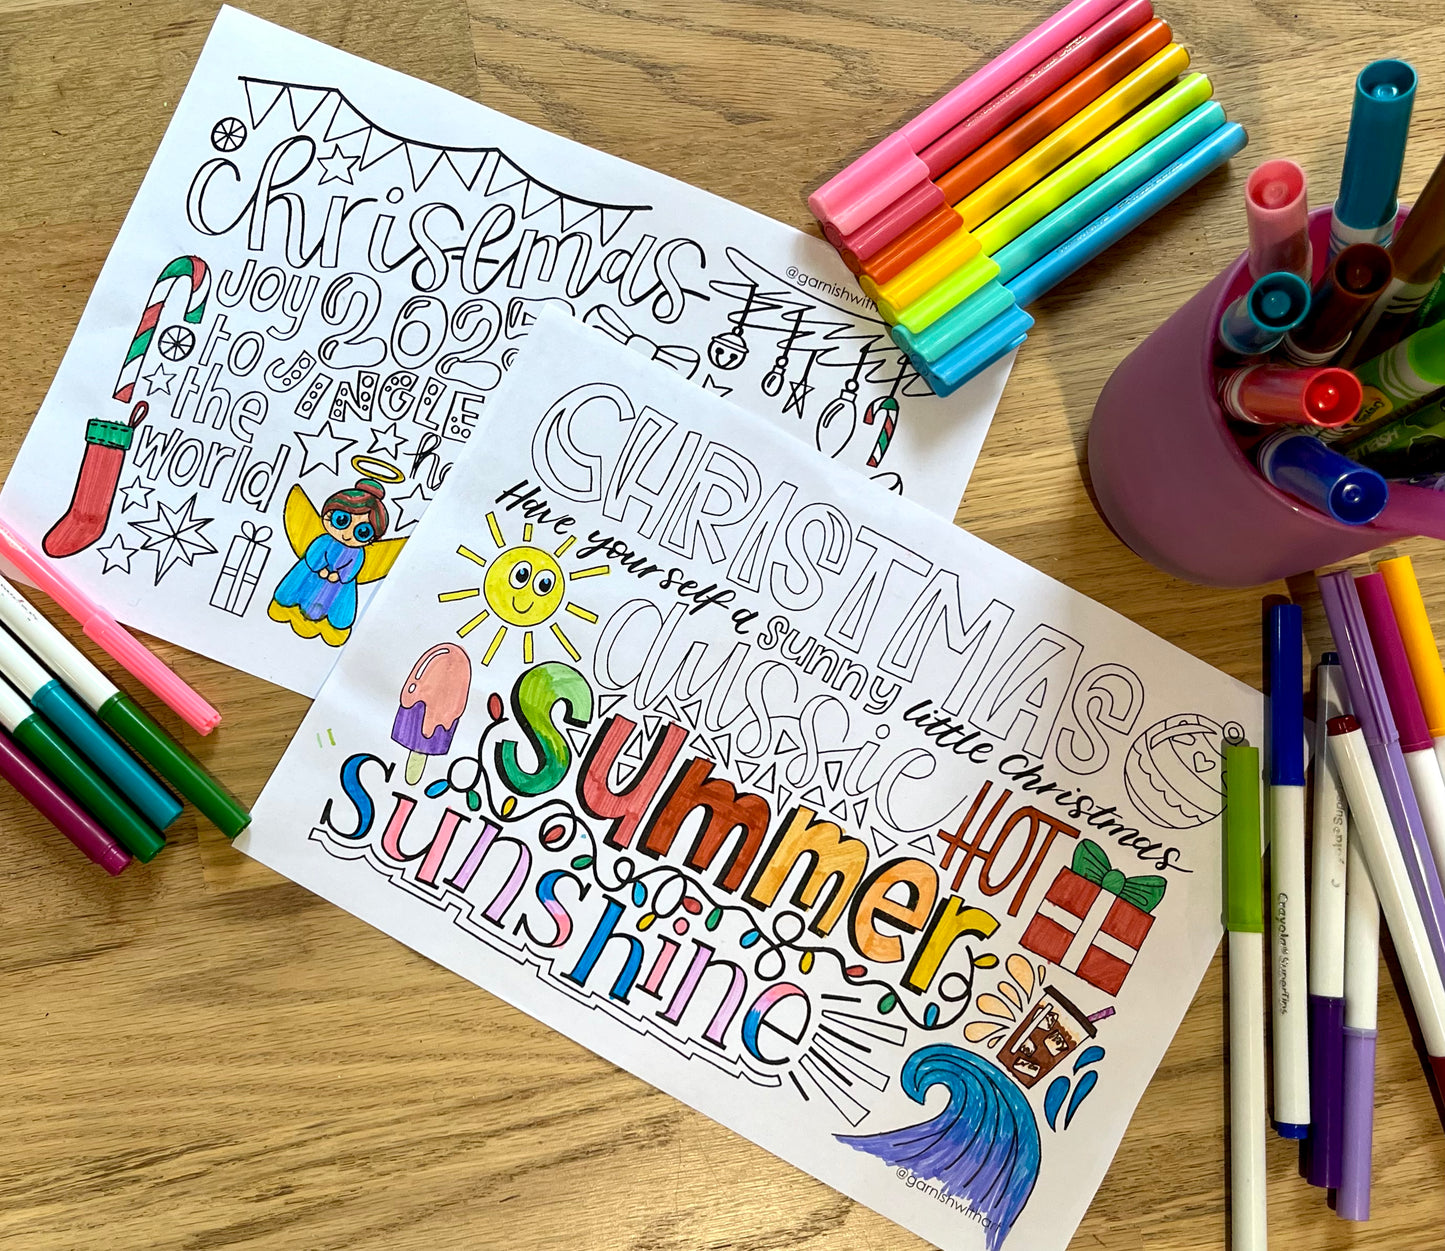 Christmas
@garnishwith
Joy 2025
to JINGLE
the
world
CHRISTMAS
Have yourself a sunny little christmas
aussie
Summer
HOT
sunshine
@garnishwithart
Crayola SuperTips